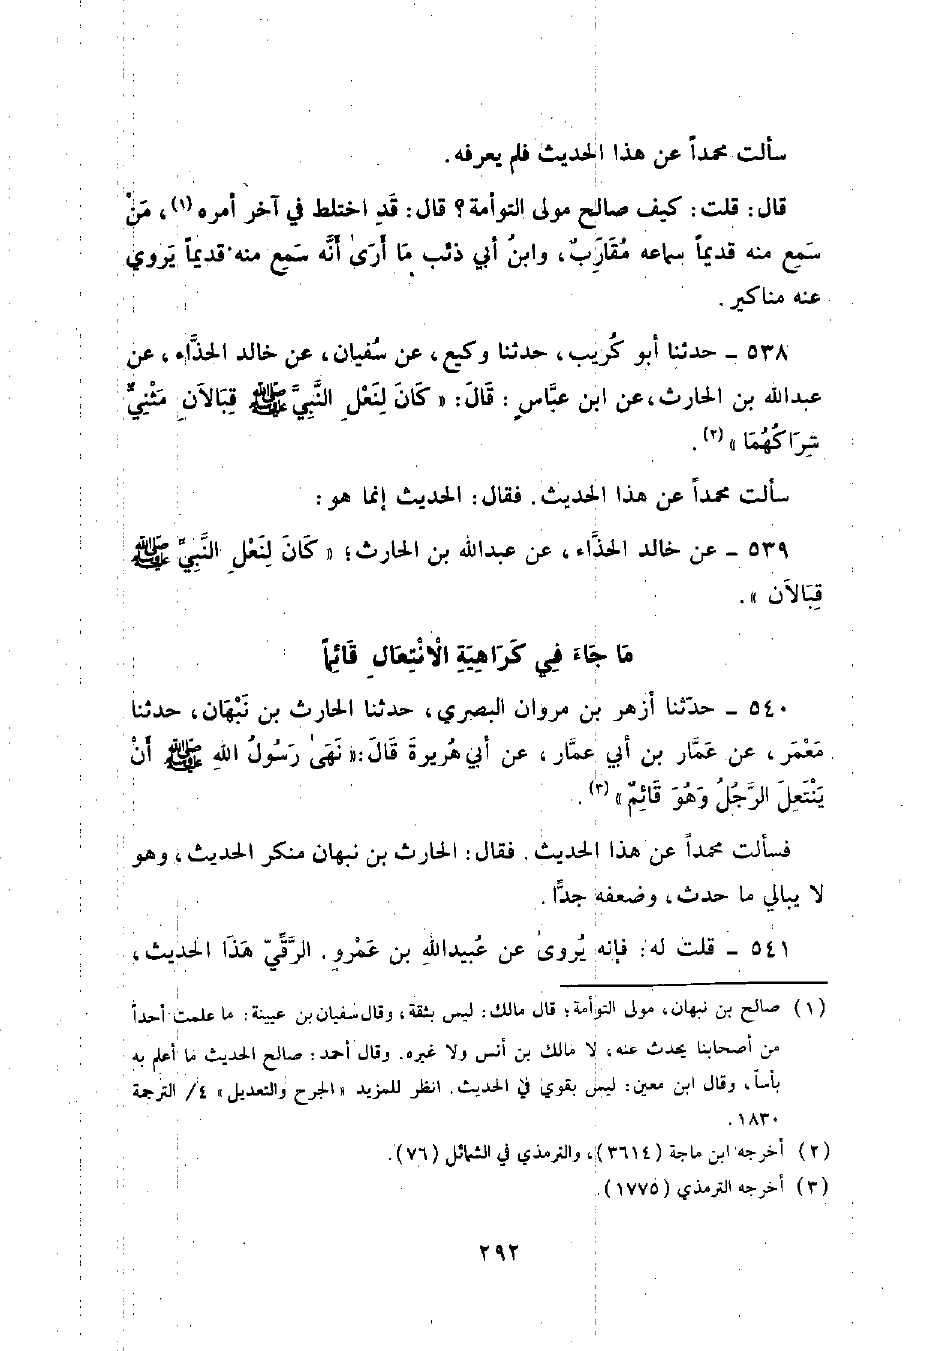 سألت محمداً عن هذا الحديث فلم يعرفه.
قال: قلت: كيف صالح مولى التوأمة؟ قال: قَدِ اختلط في آخر أمره (١)، مَنْ
سَمِع منه قديماً سماعه مُقَارَبٌ، وابنُ أبي ذئب مَا أَرَىٰ أَنَّه سَمِع منه قديماً يَروي
عنه مناكير.
٥٣٨ ـ حدثنا أبو كُريب، حدثنا وكيع، عن سُفيان، عن خالد الحذَّاء، عن
عبدالله بن الحارث، عن ابن عبَّاسٍ: قَالَ: « كَانَ لِنَعْلِ النَّبِيِّ ﷺ قِبَالاَنِ مَثْنِيٌّ
شِرَاكُهُمَا » (٢).
سألت محمداً عن هذا الحديث. فقال: الحديث إنما هو:
٥٣٩ ـ عن خالد الحذَّاء، عن عبدالله بن الحارث؛ « كَانَ لِنَعْلِ النَّبِيِّ ﷺ
قِبَالاَن ».
مَا جَاءَ فِي كَرَاهِيَةِ الْانْتِعَالِ قَائِماً
٥٤٠ ـ حدّثنا أزهر بن مروان البصري، حدثنا الحارث بن نَبْهَان، حدثنا
مَعْمَر، عن عَمَّار بن أبي عمَّار، عن أبي هُريرةَ قَالَ: « نَهَىٰ رَسُولُ اللهِ ﷺ أَنْ
يَنْتَعِلَ الرَّجُلُ وَهُوَ قَائِمٌ » (٣).
فسألت محمداً عن هذا الحديث. فقال: الحارث بن نبهان منكر الحديث، وهو
لا يبالي ما حدث، وضعفه جدًّا.
٥٤١ ـ قلت له: فإنه يُروىٰ عن عُبيداللهِ بن عَمْروٍ. الرَّقِّيّ هَذَا الحديث،
(١) صالح بن نبهان، مولى التوأمة؛ قال مالك: ليس بثقة، وقال سفيان بن عيينة: ما علمت أحداً
من أصحابنا يحدث عنه، لا مالك بن أنس ولا غيره. وقال أحمد: صالح الحديث ما أعلم به
بأساً، وقال ابن معين: ليس بقوي في الحديث. انظر للمزيد « الجرح والتعديل » ٤/ الترجمة
١٨٣٠.
(٢) أخرجه ابن ماجة (٣٦١٤)، والترمذي في الشمائل (٧٦).
(٣) أخرجه الترمذي (١٧٧٥).
٢٩٢